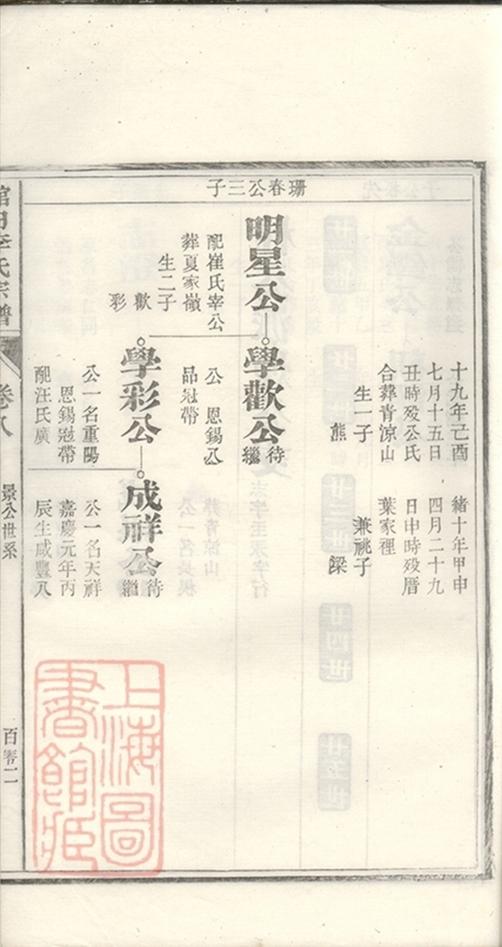 珊春公三子
十九年己酉
七月十五日
丑時殁公氏
合葬青凉山
生一子
熊
緒十年甲申
四月二十九
日申時殁厝
葉家裡
兼祧子
樑
明星公
配崔氏宰公
葬夏家嶺
生二子
歡
彩
學歡公
待繼
公 恩錫八
品冠帶
學彩公
公一名重陽
恩錫冠帶
配汪氏廣
成祥公
待繼
公一名天祥
嘉慶元年丙
辰生咸豐八
田李氏宗譜
卷八
景公世系
百零二
上海圖
書館藏